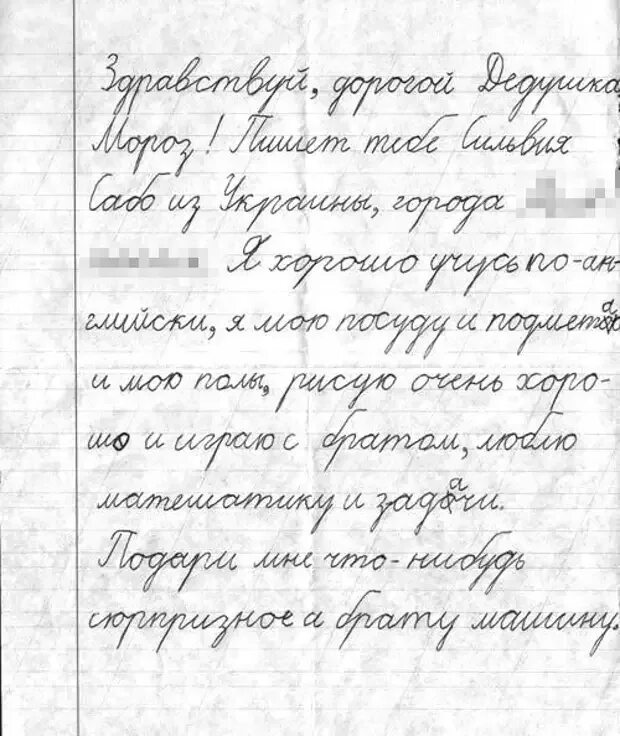 Здравствуй, дорогой Дедушка
Мороз! Пишет тебе Сильвия
Сабо из Украины, города
Я хорошо учусь по-ан-
глийски, я мою посуду и подметаю
и мою полы, рисую очень хоро-
шо и играю с братом, люблю
математику и задачи.
Подари мне что-нибудь
сюрпризное а брату машину.